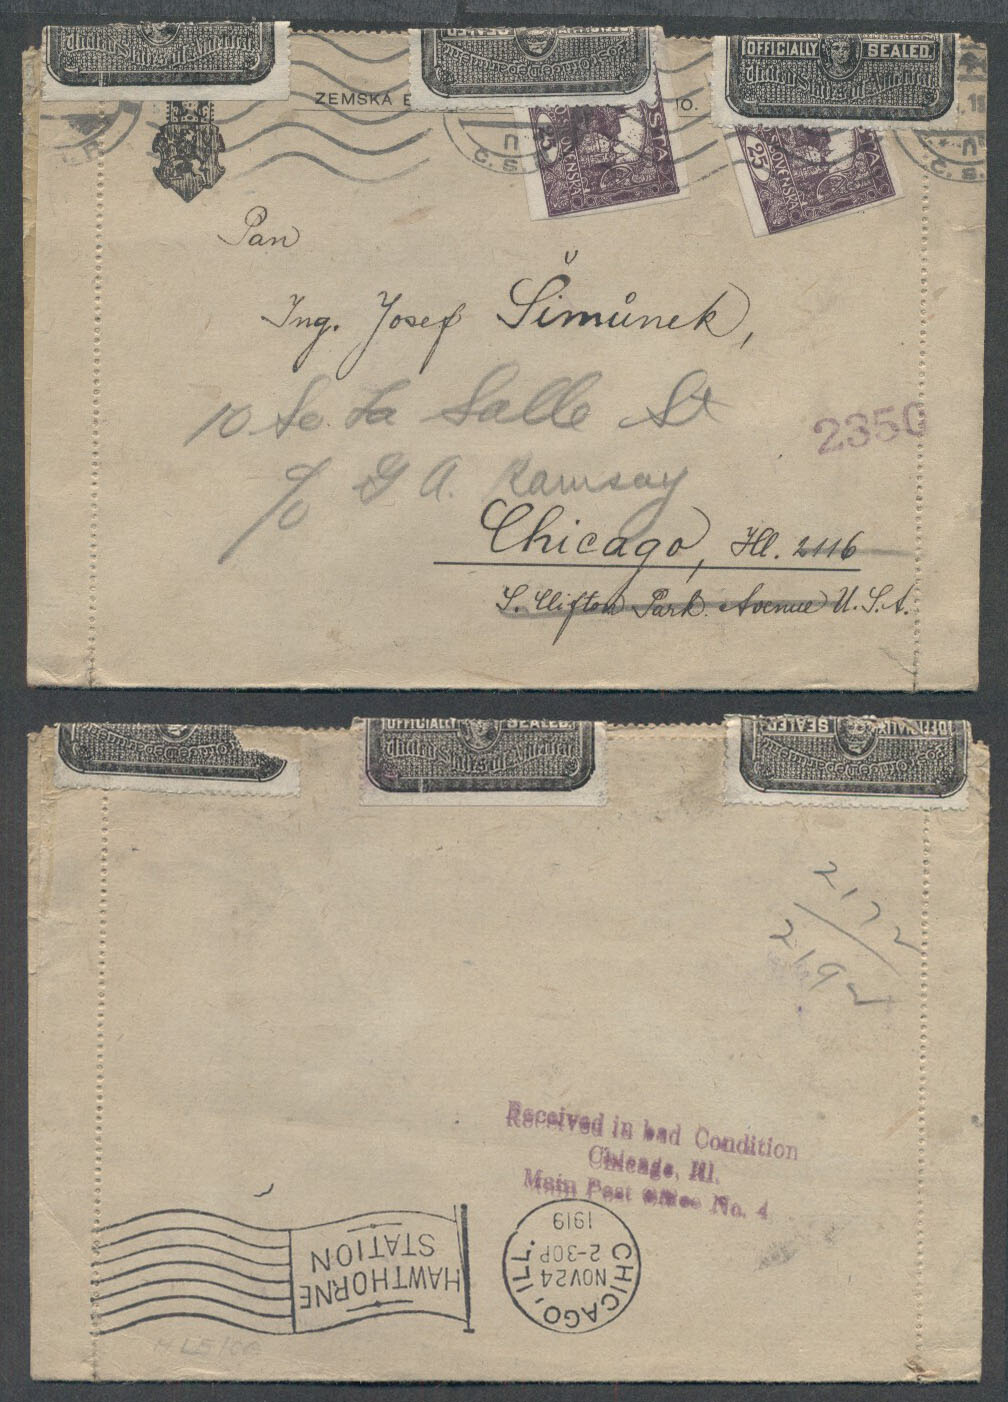 United States of America
OFFICIALLY SEALED.
United States of America
ZEMSKÁ
NO.
25
25
Č.S.
Č.S.
Pan
Ing. Josef Šimůnek,
10 So. La Salle St
c/o G A. Ramsay
2350
Chicago, Ill. 2116
S. Clifton Park Avenue U.S.A.
OFFICIALLY SEALED.
United States of America
OFFICIALLY SEALED.
Post Office Department
2172
2192
Received in bad Condition
Chicago, Ill.
Main Post Office No. 4
HAWTHORNE
STATION
CHICAGO, ILL.
NOV 24
2-30P
1919